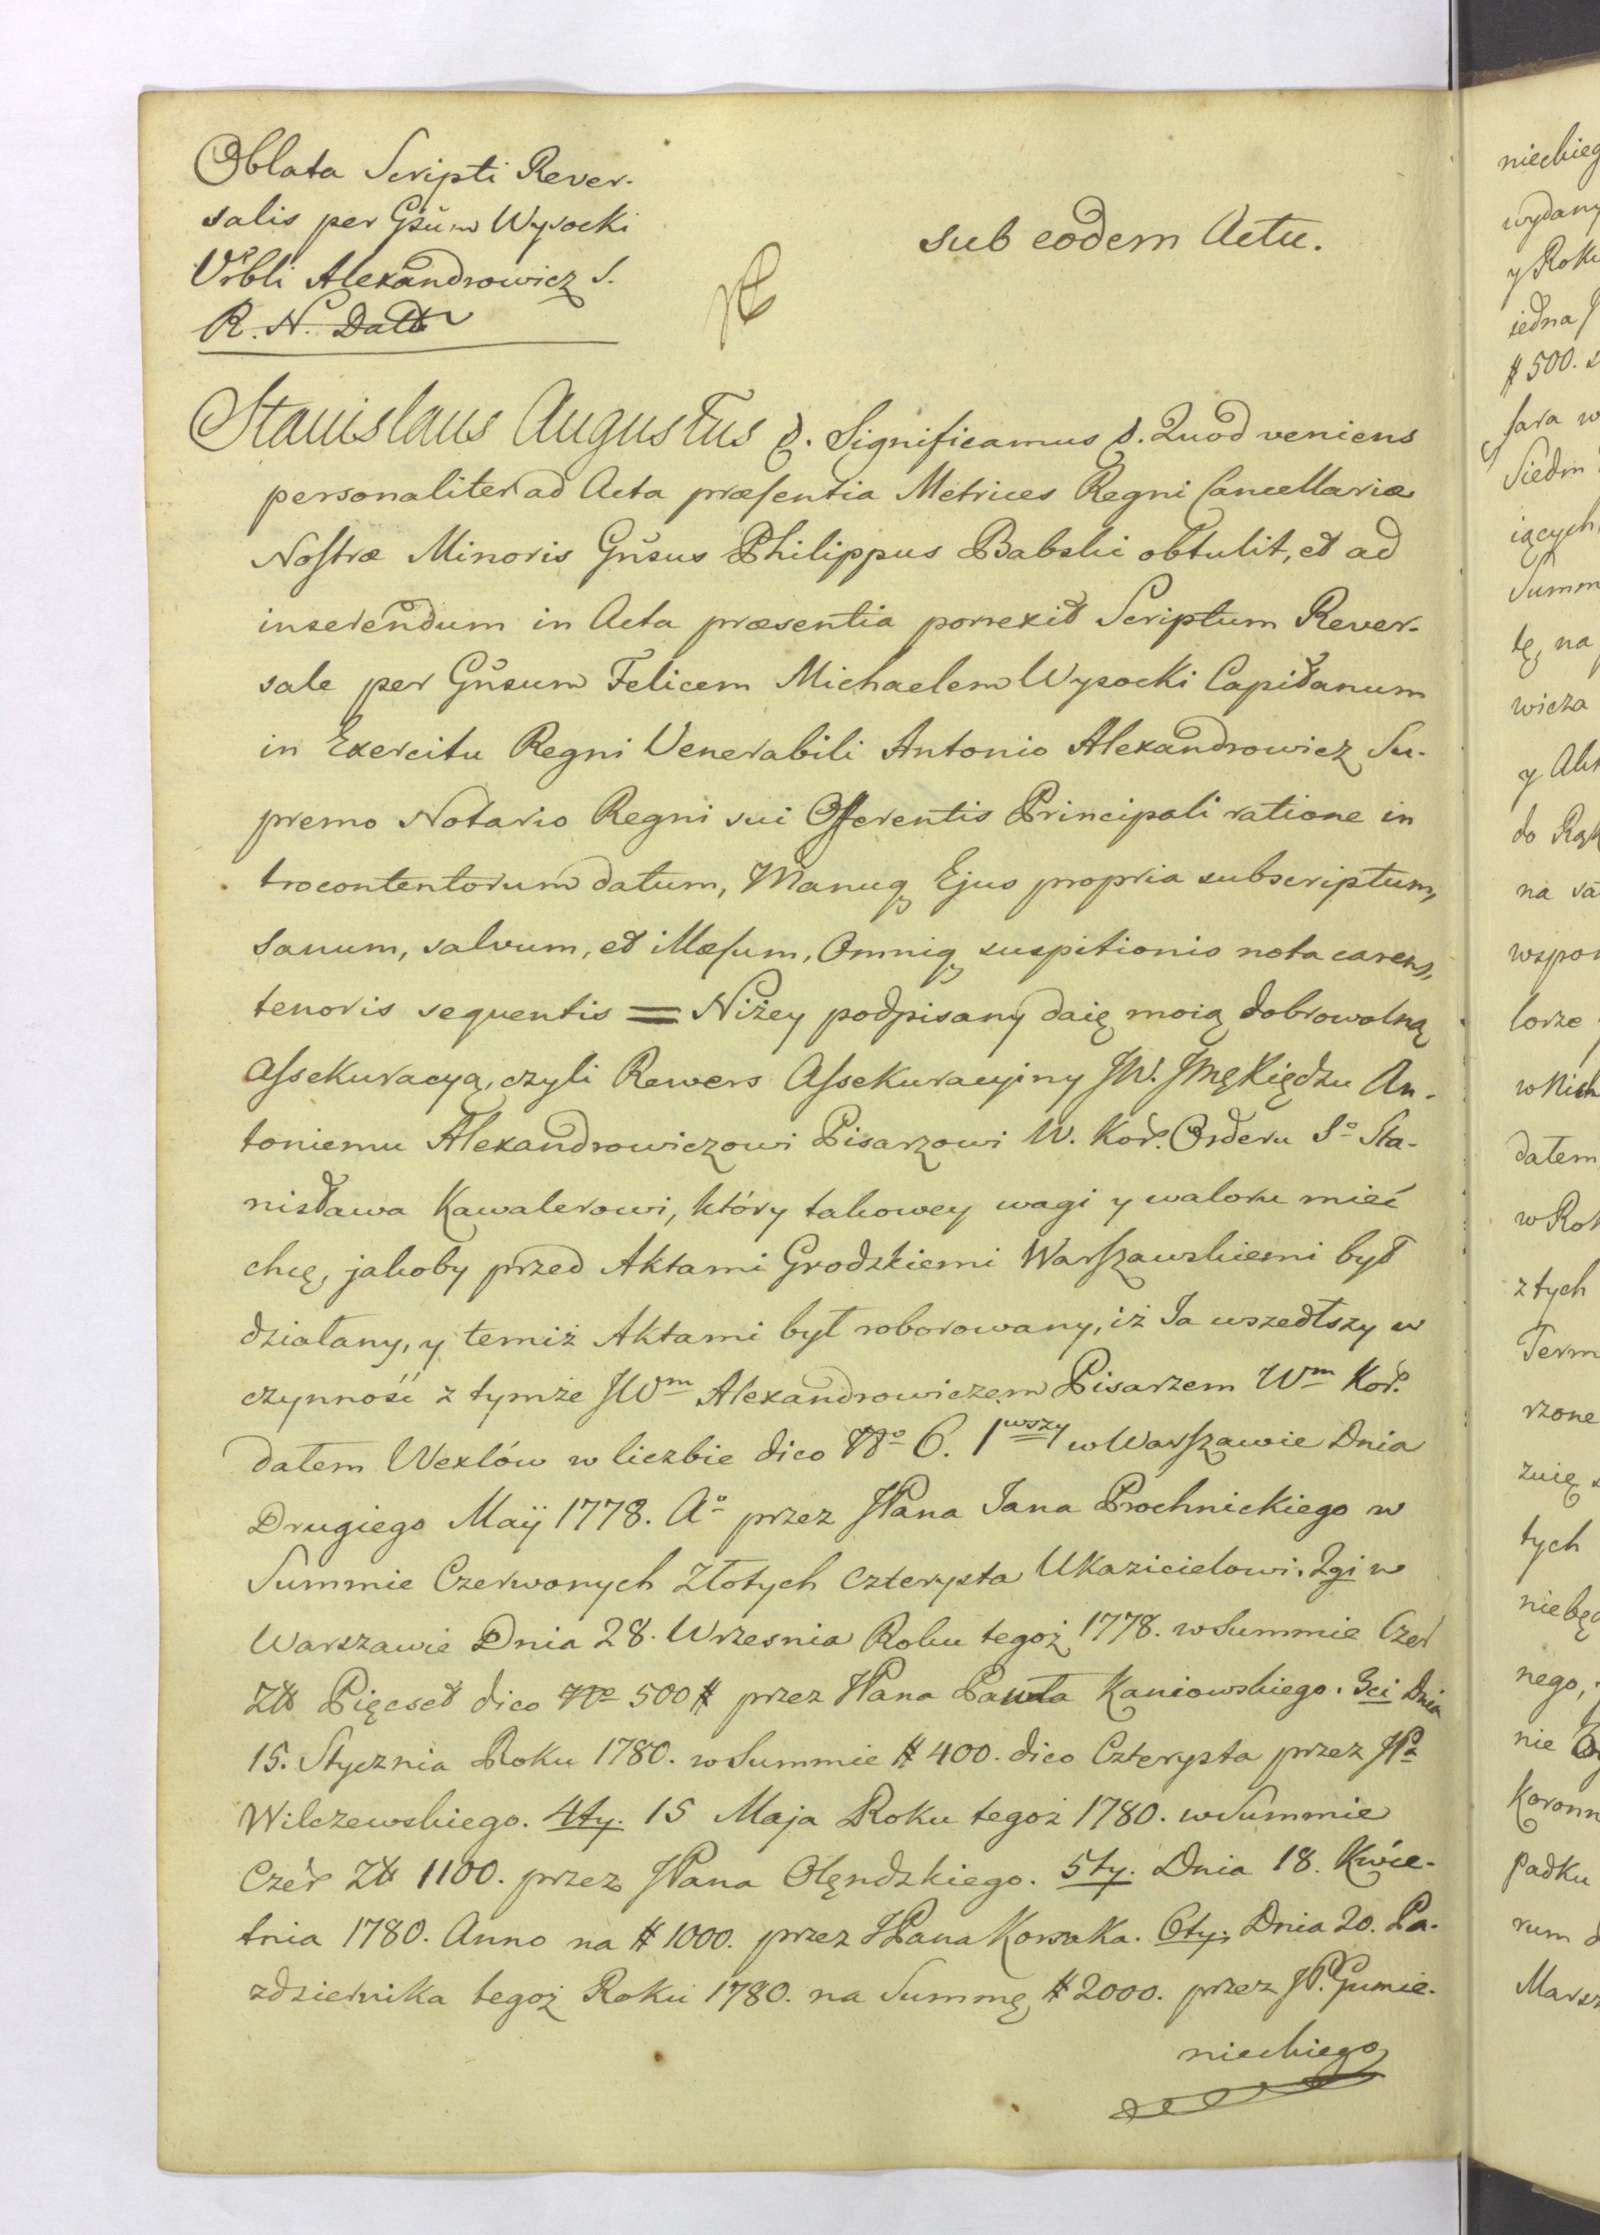 Oblata Scripti Rever-
salis per Gsum Wysocki
Vrbli Alexandrowicz S.
R. N. Datt
sub eodem Actu.
Stanislaus Augustus &. Significamus &. Quod veniens
personaliter ad Acta præsentia Metrices Regni Cancellariæ
Nostræ Minoris Gnsus Philippus Babski obtulit, et ad
inserendum in Acta præsentia porrexit Scriptum Rever-
sale per Gnsum Felicem Michaelem Wysocki Capitanum
in Exercitu Regni Venerabili Antonio Alexandrowicz Su-
premo Notario Regni sui Offerentis Principali ratione in
trocontentorum datum, Manuq Ejus propria subscriptum,
Sanum, salvum, et illæsum, Omniq suspitionis nota carens,
tenoris sequentis = Niżey podpisany daię moią dobrowolną
Assekuracyą, czyli Rewers Assekuracyiny JW. Jmę Xiędzu An-
toniemu Alexandrowiczowi Pisarzowi W. Kor. Orderu So Sta-
nisława Kawalerowi, który takowey wagi y waloru mieć
chcę, jakoby przed Aktami Grodzkiemi Warszawskiemi był
działany, y temiż Aktami był roborowany, iż Ja wszedłszy w
czynność z tymże JWm Alexandrowiczem Pisarzem Wm Kor.
dałem Wexlów w liczbie dico No 6. 1wszy w Warszawie Dnia
Drugiego Maÿ 1778. Ao przez JPana Jana Prochnickiego w
Summie Czerwonych Złotych czterysta Ukazicielowi. 2gi w
Warszawie Dnia 28. Wrzesnia Roku tegoż 1778. w Summie Czer
Zł Pięcset dico No 500 # przez JPana Pawła Kaniowskiego. 3ci Dnia
15. Stycznia Roku 1780. w Summie # 400. dico Czterysta przez JPa
Wilczewskiego. 4ty. 15 Maja Roku tegoż 1780. w Summie
Czer Zł 1100. przez JPana Olędzkiego. 5ty. Dnia 18. Kwie-
tnia 1780. Anno na # 1000. przez JPana Korsaka. 6ty. Dnia 20. Pa-
zdziernika tegoż Roku 1780. na Summę # 2000. przez JP. Gumie-
nieckiego
nieckieg
wydany
y Roku
iedna
# 500.
Siedm
iących
Summ
tę na
wicza
y
do
na
wspo
lorze
datem
w Rok
z tych
Term
rzone
tych
nego,
nie
Koronn
padku
rum
Marsz